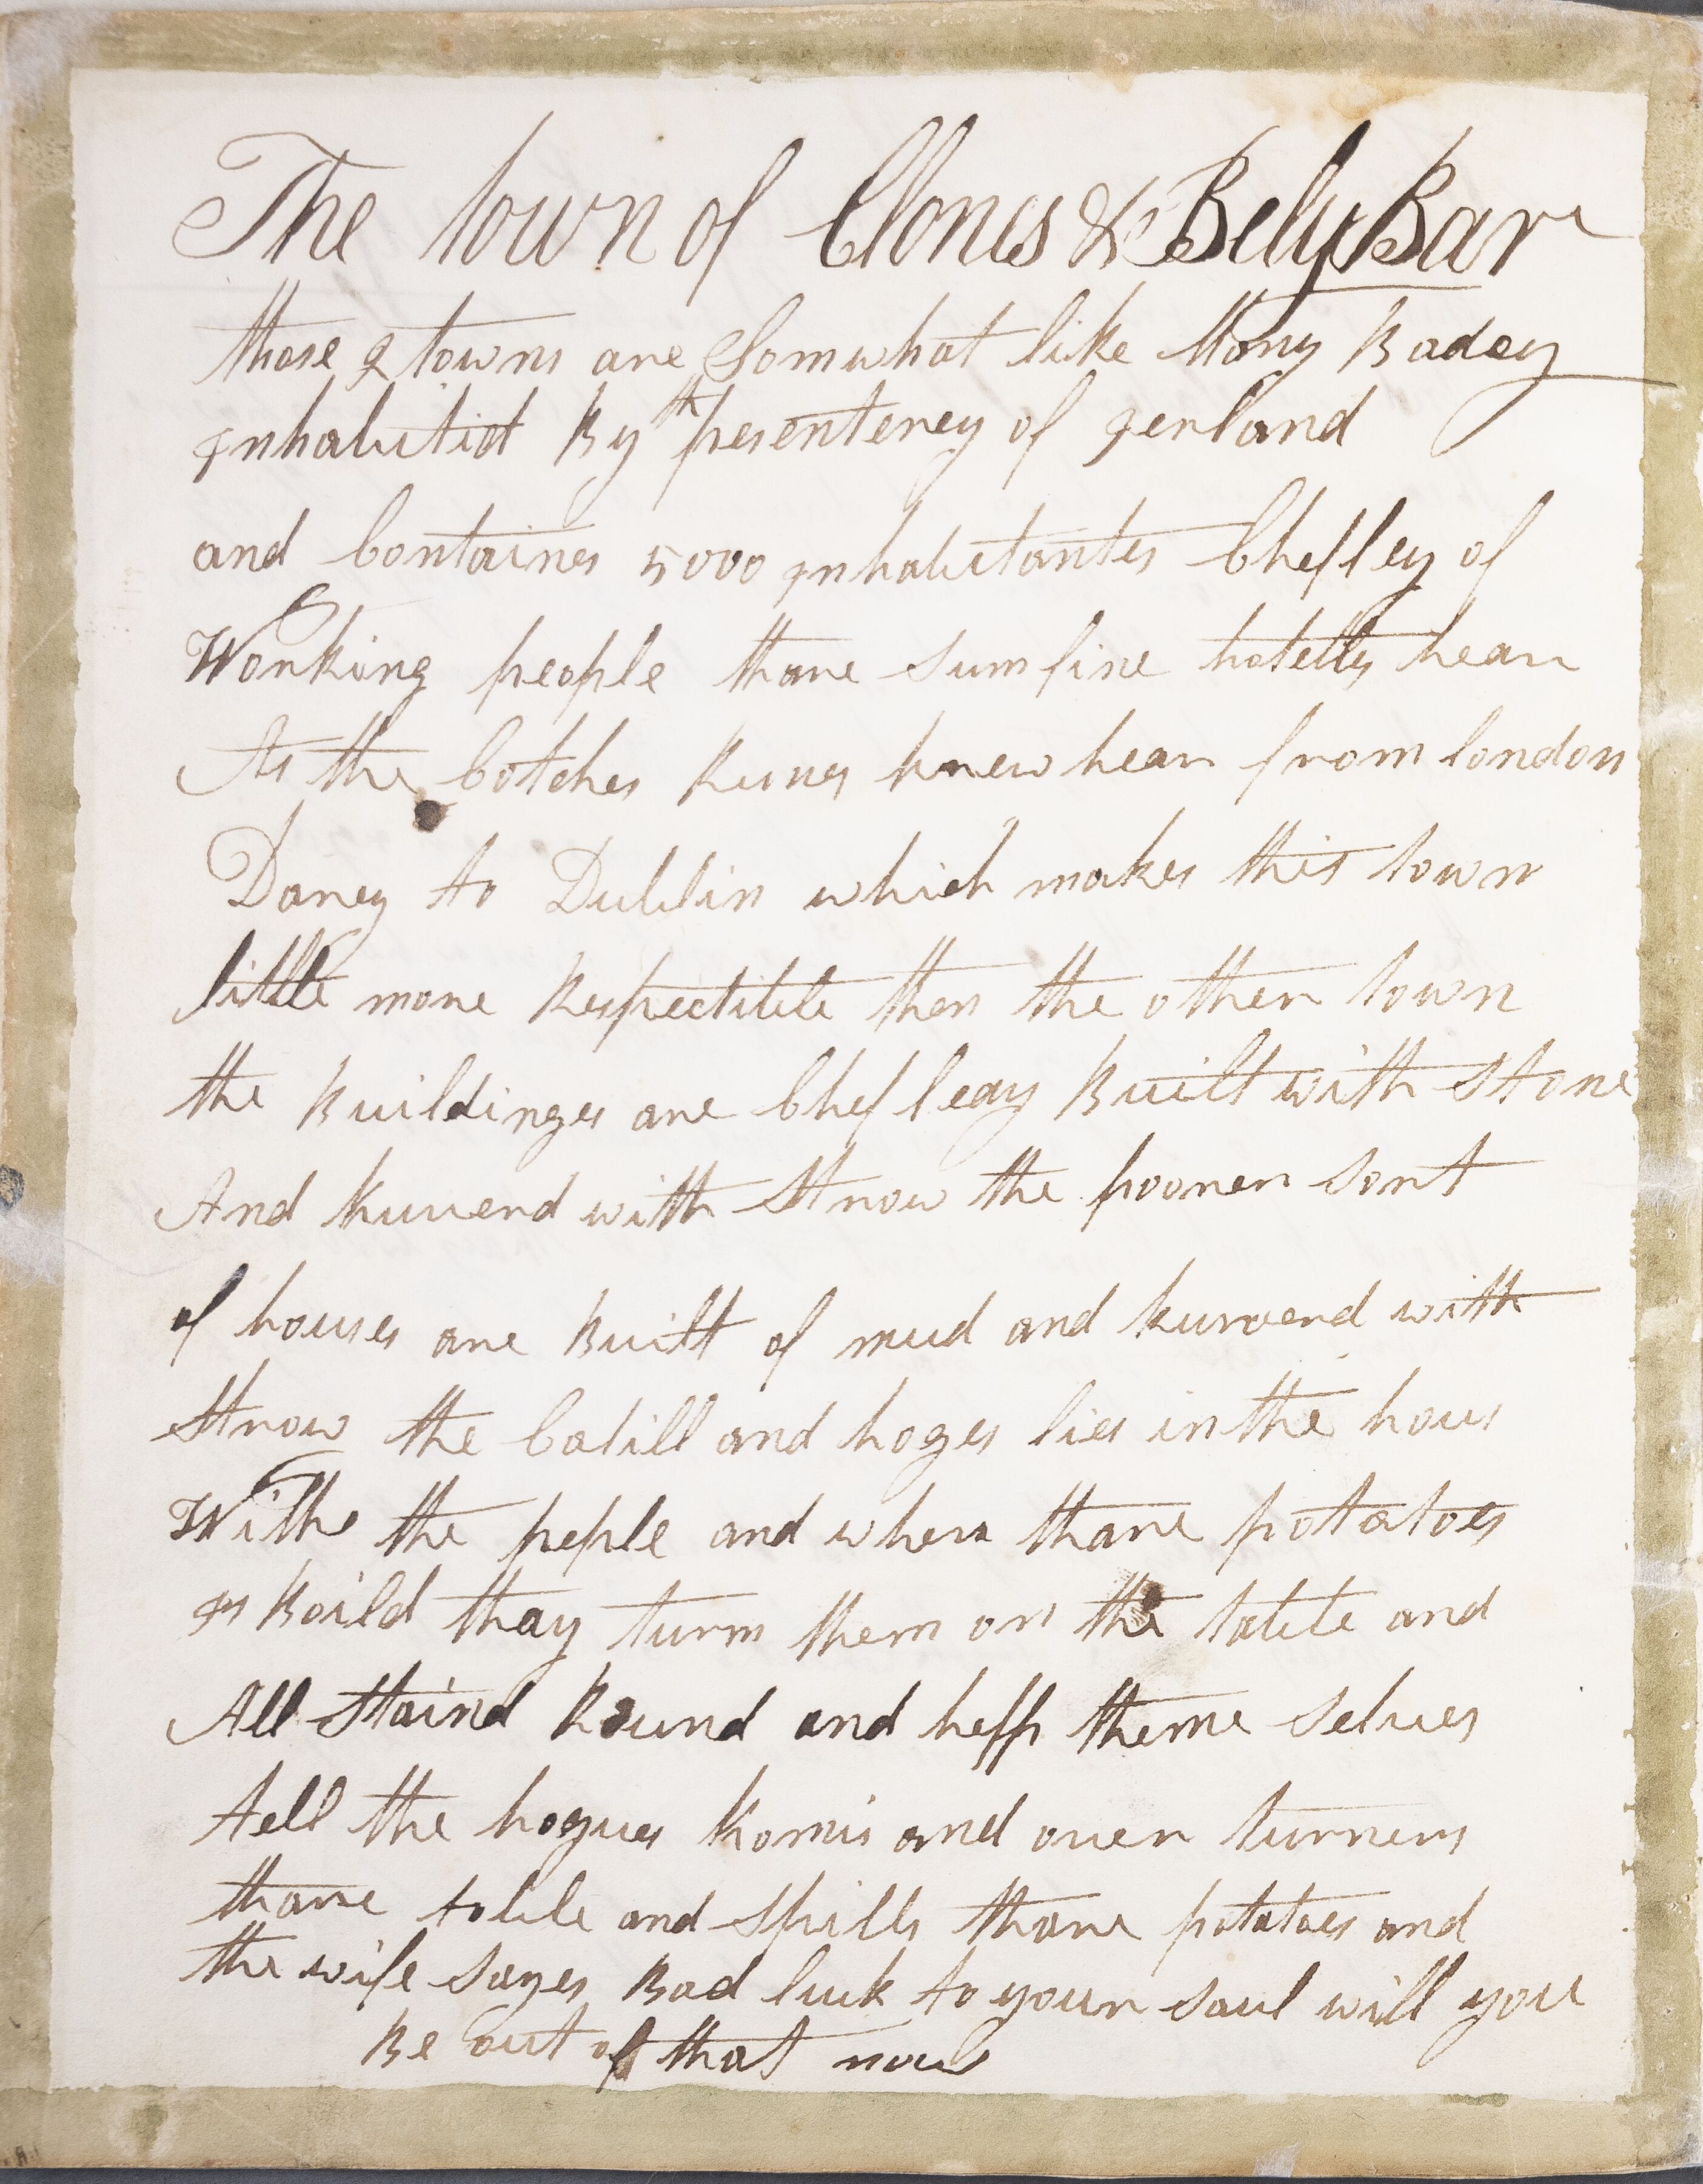 The town of Clones & BelyBar
those 2 towns are Somwhat like Mony Badey
inhabitid By th pesenterey of ierland
and Containes 5000 inhabitantes Cheffley of
Working people thare sum fine hotells hear
As the Cotches Runes knew hear from london
Darey to Dublin which makes this town
little more Respectible then the other town
the Buildinges are Chef leay Built with Stone
And kuverd with Strow the poorer sort
of houses are Built of mud and kurverd with
Strow the Catill and hoges lies in the hous
Withe the peple and when thare potatoes
is Boild thay turm them on the table and
All Staind Round and helph theme selves
tell the hogues Komis and over turnens
thare table and Spills thare potatoes and
the wife sayes Bad luck to your saul will you
Be out of that now